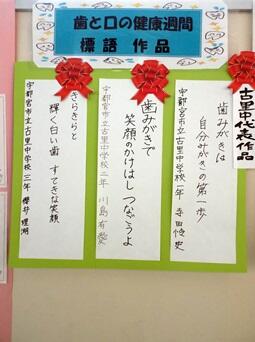 歯と口の健康週間
標語 作品
古里中代表作品
歯みがきは
自分みがきの第一歩
宇都宮市立古里中学校一年 寺田
歯みがきで
笑顔のかけはし つなごうよ
宇都宮市立古里中学校二年 川島 有愛
きらきらと
輝く白い歯 すてきな笑顔
宇都宮市立古里中学校三年 櫻井 理湖